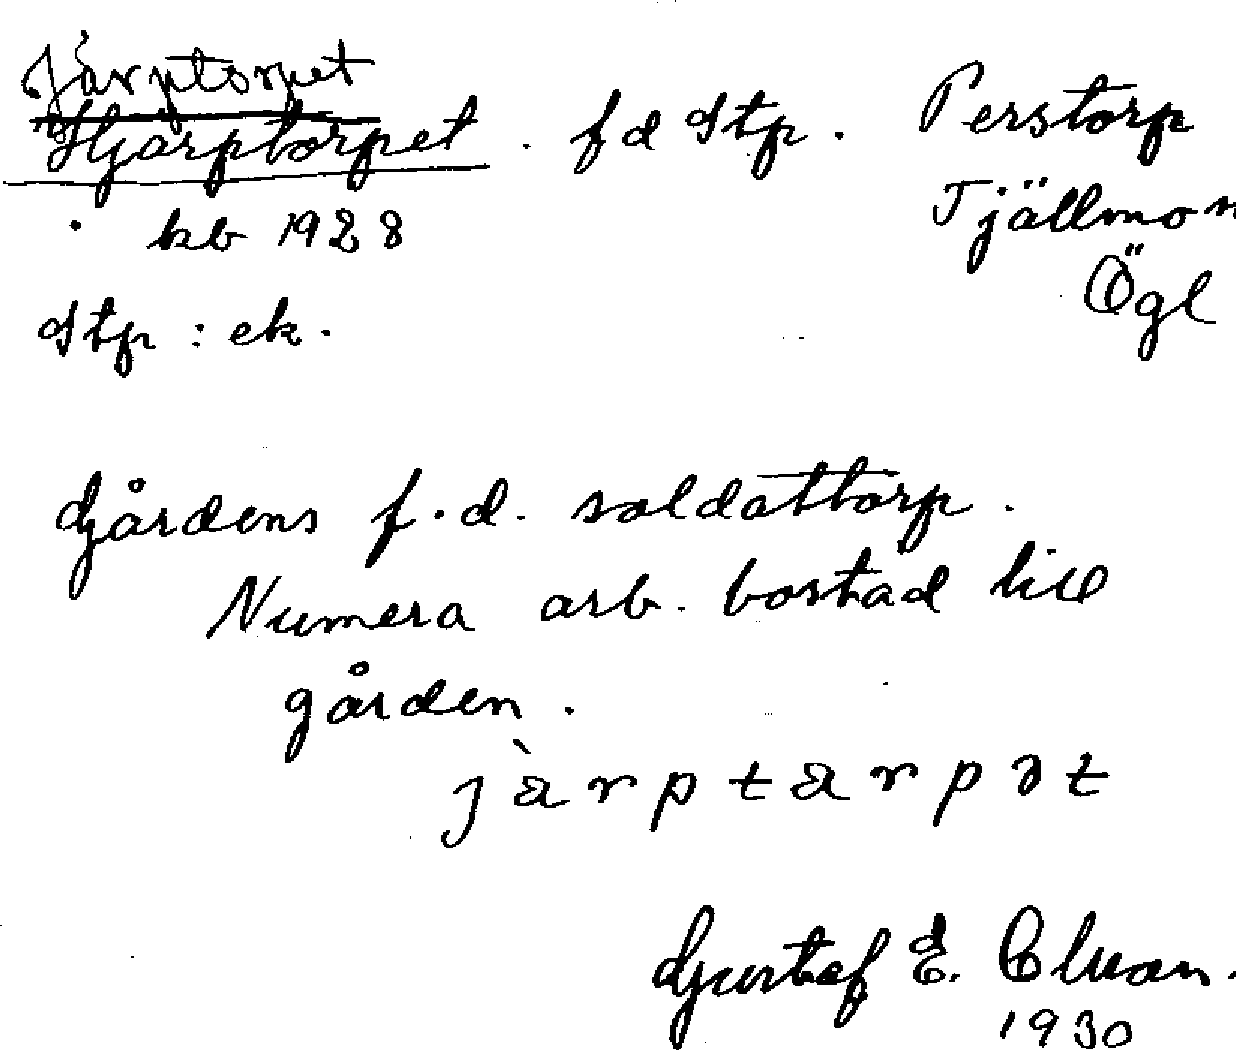 Järptorpet
Hjärptorpet. fd Stp. Perstorp
Tjällmo
kb 1928
Ögl
Stp : ek.
Gårdens f.d. soldattorp.
Numera arb. bostad till
gården.
Gustaf E.
1930